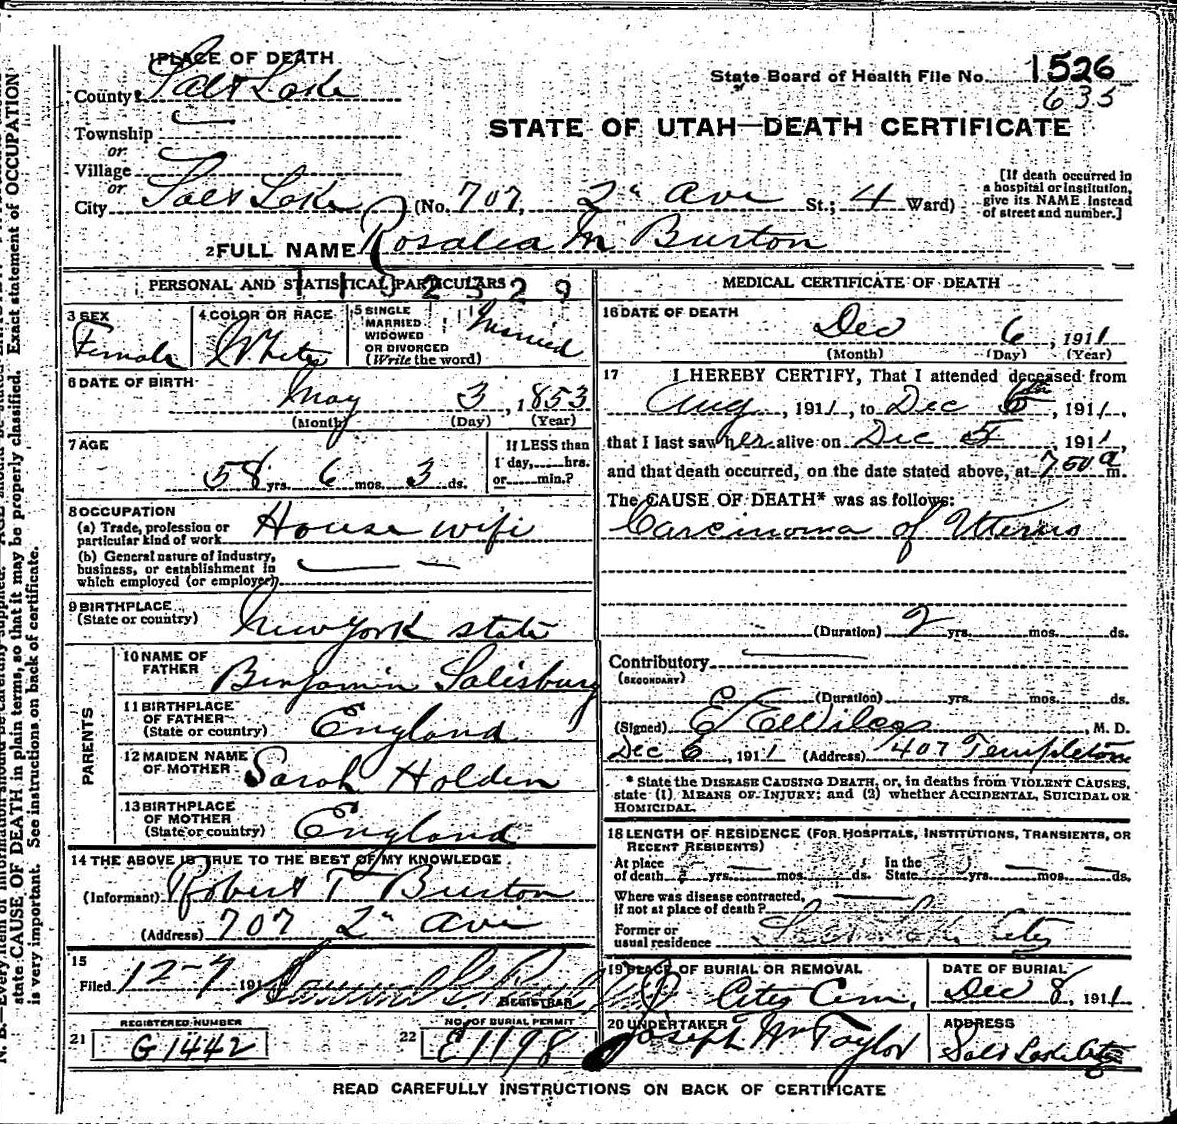 1 PLACE OF DEATH
County Salt Lake
State Board of Health File No. 1526
635
Township
or
STATE OF UTAH—DEATH CERTIFICATE
Village
or
City Salt Lake (No. 707, 2" Ave St.; 4 Ward)
[If death occurred in
a hospital or institution,
give its NAME instead
of street and number.]
2 FULL NAME Rosalea M Burton
PERSONAL AND STATISTICAL PARTICULARS
3 SEX
Female
4 COLOR OR RACE
White
5 SINGLE
MARRIED
WIDOWED
OR DIVORCED
(Write the word)
Married
6 DATE OF BIRTH
May 3, 1853
(Month) (Day) (Year)
7 AGE
58 yrs. 6 mos. 3 ds.
If LESS than
1 day, hrs.
or min.?
8 OCCUPATION
(a) Trade, profession or
particular kind of work House wife
(b) General nature of industry,
business, or establishment in
which employed (or employer)
9 BIRTHPLACE
(State or country) New York state
PARENTS
10 NAME OF
FATHER Benjamin Salisbury
11 BIRTHPLACE
OF FATHER
(State or country) England
12 MAIDEN NAME
OF MOTHER Sarah Holden
13 BIRTHPLACE
OF MOTHER
(State or country) England
14 THE ABOVE IS TRUE TO THE BEST OF MY KNOWLEDGE
(Informant) Robert T Burton
(Address) 707 2" Ave
15
Filed 12-7 191
REGISTRAR
21 REGISTERED NUMBER
G1442
22 NO. OF BURIAL PERMIT
E1198
MEDICAL CERTIFICATE OF DEATH
16 DATE OF DEATH
Dec 6, 1911
(Month) (Day) (Year)
17 I HEREBY CERTIFY, That I attended deceased from
Aug, 1911, to Dec 6th, 1911,
that I last saw her alive on Dec 5, 1911,
and that death occurred, on the date stated above, at 7 50 a m.
The CAUSE OF DEATH* was as follows:
Carcinoma of Uterus
(Duration) 2 yrs. mos. ds.
Contributory
(SECONDARY)
(Duration) yrs. mos. ds.
(Signed) E E Wilcox, M. D.
Dec 6, 1911 (Address) 407 Templeton
* State the DISEASE CAUSING DEATH, or, in deaths from VIOLENT CAUSES,
state (1), MEANS OF INJURY; and (2) whether ACCIDENTAL, SUICIDAL OR
HOMICIDAL.
18 LENGTH OF RESIDENCE (FOR HOSPITALS, INSTITUTIONS, TRANSIENTS, OR
RECENT RESIDENTS)
At place
of death yrs. mos. ds.
In the
State yrs. mos. ds.
Where was disease contracted,
if not at place of death?
Former or
usual residence Salt Lake City
19 PLACE OF BURIAL OR REMOVAL
City Cem,
DATE OF BURIAL
Dec 8, 1911
20 UNDERTAKER
Joseph Wm Taylor
ADDRESS
Salt Lake City
READ CAREFULLY INSTRUCTIONS ON BACK OF CERTIFICATE
state CAUSE OF DEATH in plain terms, so that it may be properly classified. Exact statement of OCCUPATION
is very important. See instructions on back of certificate.